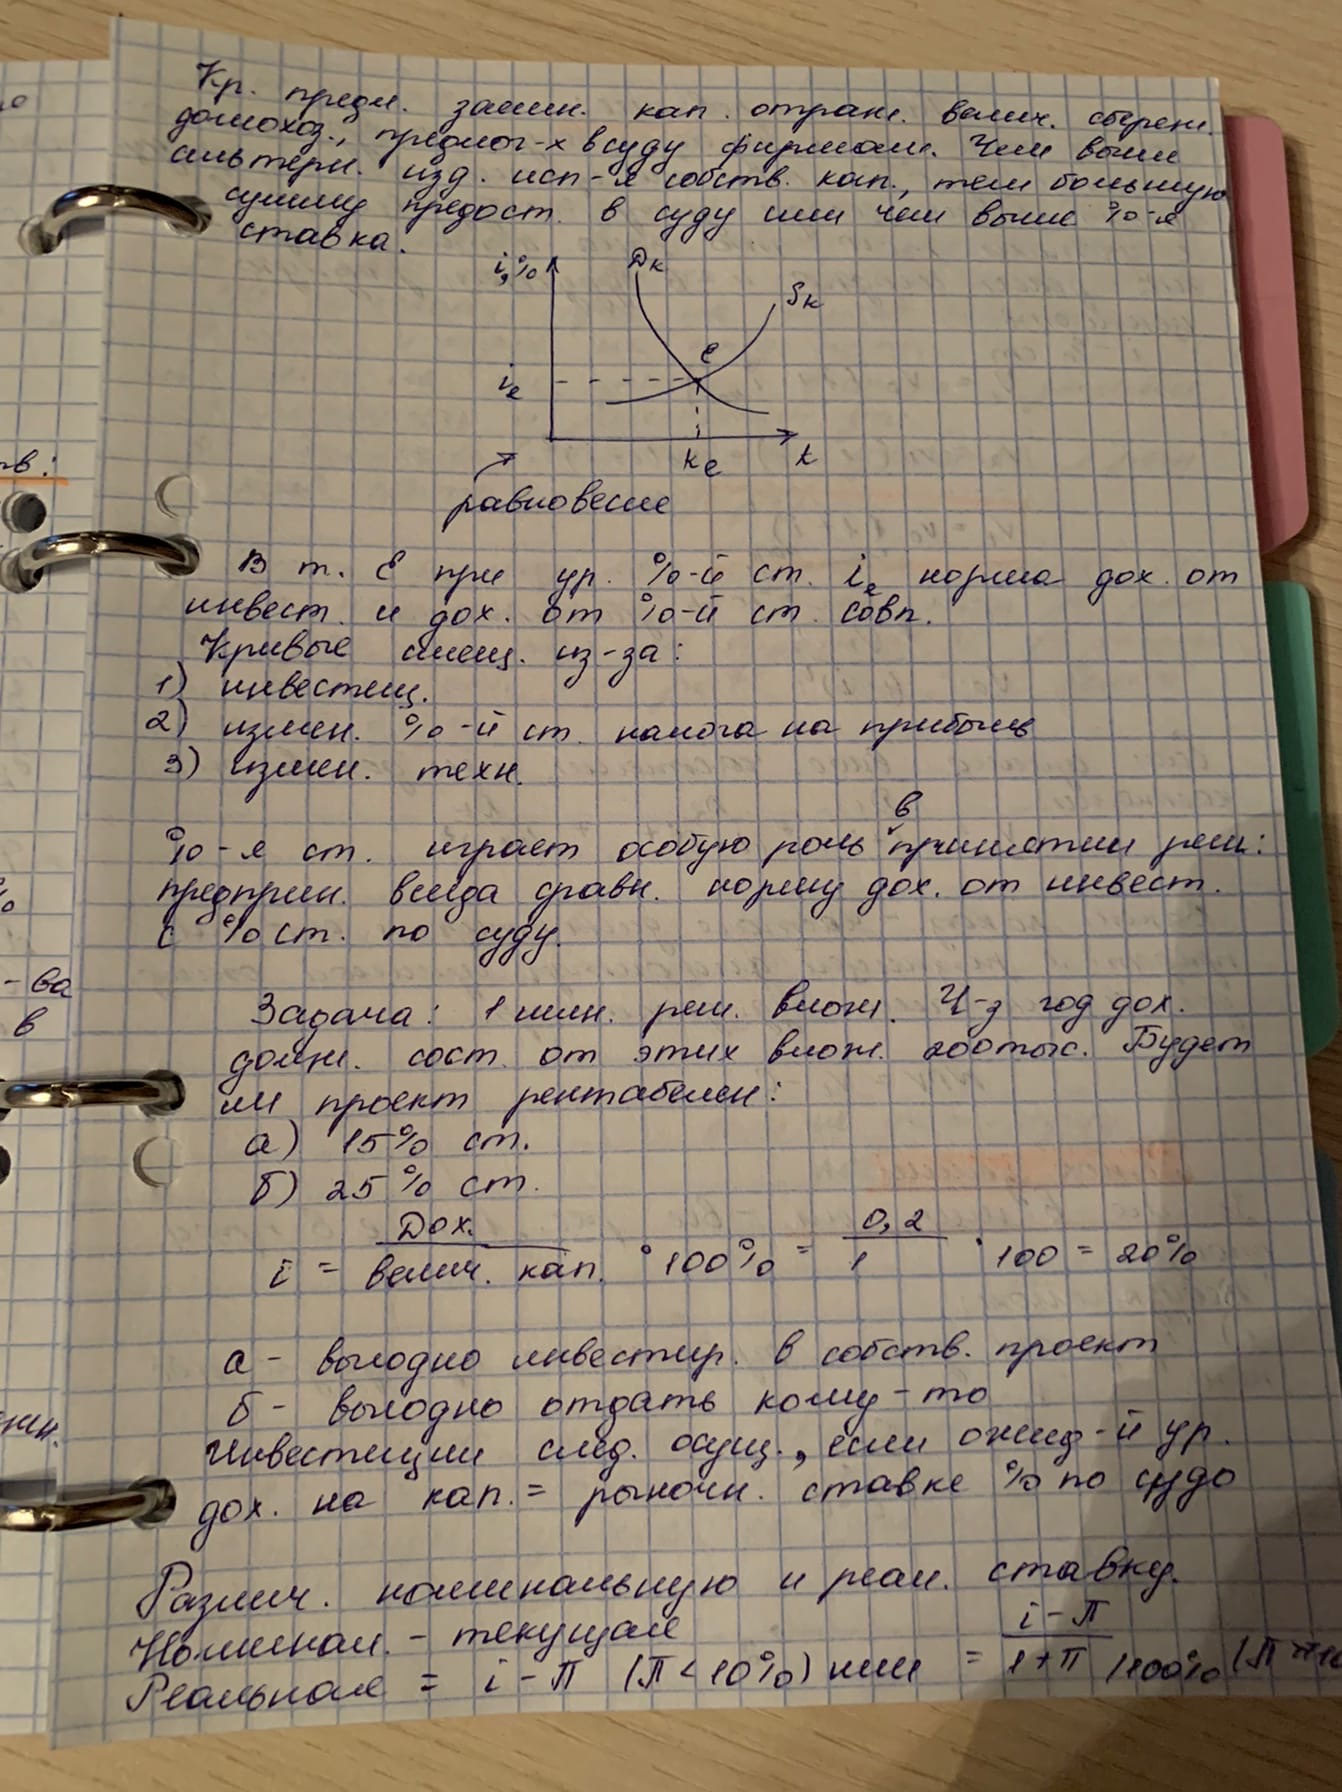 Кр. предл. заимн. кап. отраж. велич. сбереж.
домохоз., предлог-х в суду фирмам. Чем выше
альтерн. изд. исп-я собств. кап., тем большую
сумму предост. в суду или чем выше %-я
ставка.
i,% Dк
Sк
e
ie
Ke k
равновесие
В т. E при ур. %-й ст. ie норма дох. от
инвест. и дох. от %-й ст. совп.
Кривые смещ. из-за:
1) инвестиц.
2) измен. %-й ст. налога на прибыль
3) измен. техн.
в
%-я ст. играет особую роль принятии реш:
предприн. всегда сравн. норму дох. от инвест.
с % ст. по суду.
Задача: 1 млн. реш. влож. Ч-з год дох.
должн. сост. от этих влож. 200 тыс. Будет
ли проект рентабелен:
а) 15% ст.
б) 25% ст.
i = Дох. / велич. кап. · 100% = 0,2 / 1 · 100 = 20%
а - выгодно инвестир. в собств. проект
б - выгодно отдать кому-то
Инвестиции след. осущ., если ожид-й ур.
дох. на кап. = рыночн. ставке % по судо
Различ. номинальную и реал. ставку.
Номинал. - текущая
Реальная = i - П (П < 10%) или = i - П / 1 + П · 100% (П
ств:
-ва
в